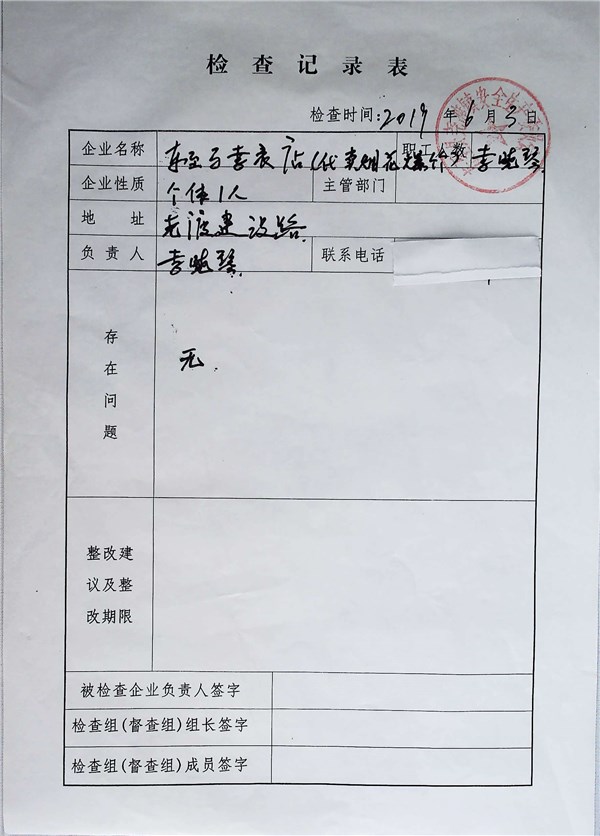 检查记录表
检查时间:2019年6月3日
企业名称 店(代卖烟花爆竹) 职工人数 李
企业性质 个体1人 主管部门
地址 老渡建设路
负责人 李 联系电话
存在问题 无.
整改建议及整改期限
被检查企业负责人签字
检查组(督查组)组长签字
检查组(督查组)成员签字